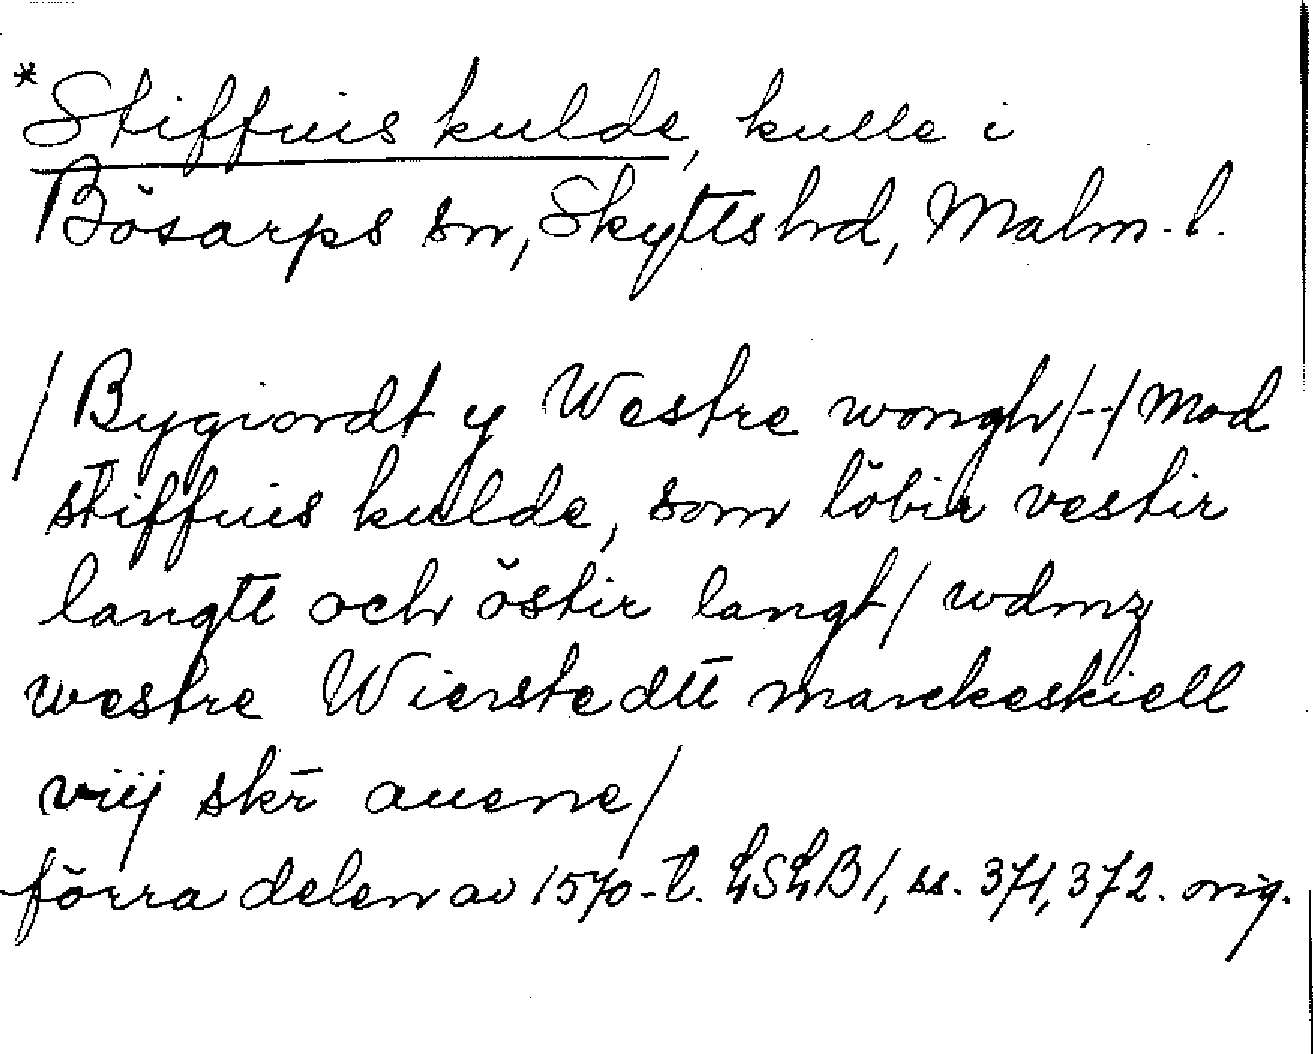 *Stiffuis kulde, kulle i
Bösarps sn, Skytts hd, Malm. l.
/Bygiordt y Westre wongh/--/Mod
stiffuis kulde, som löbir vestir
langtt och östir langt/ wdmz
westre Wierstedtt marckeskiell
viij skr̄ auene/
förra delen av 1570-t. LSLB 1, ss. 371, 372. orig.